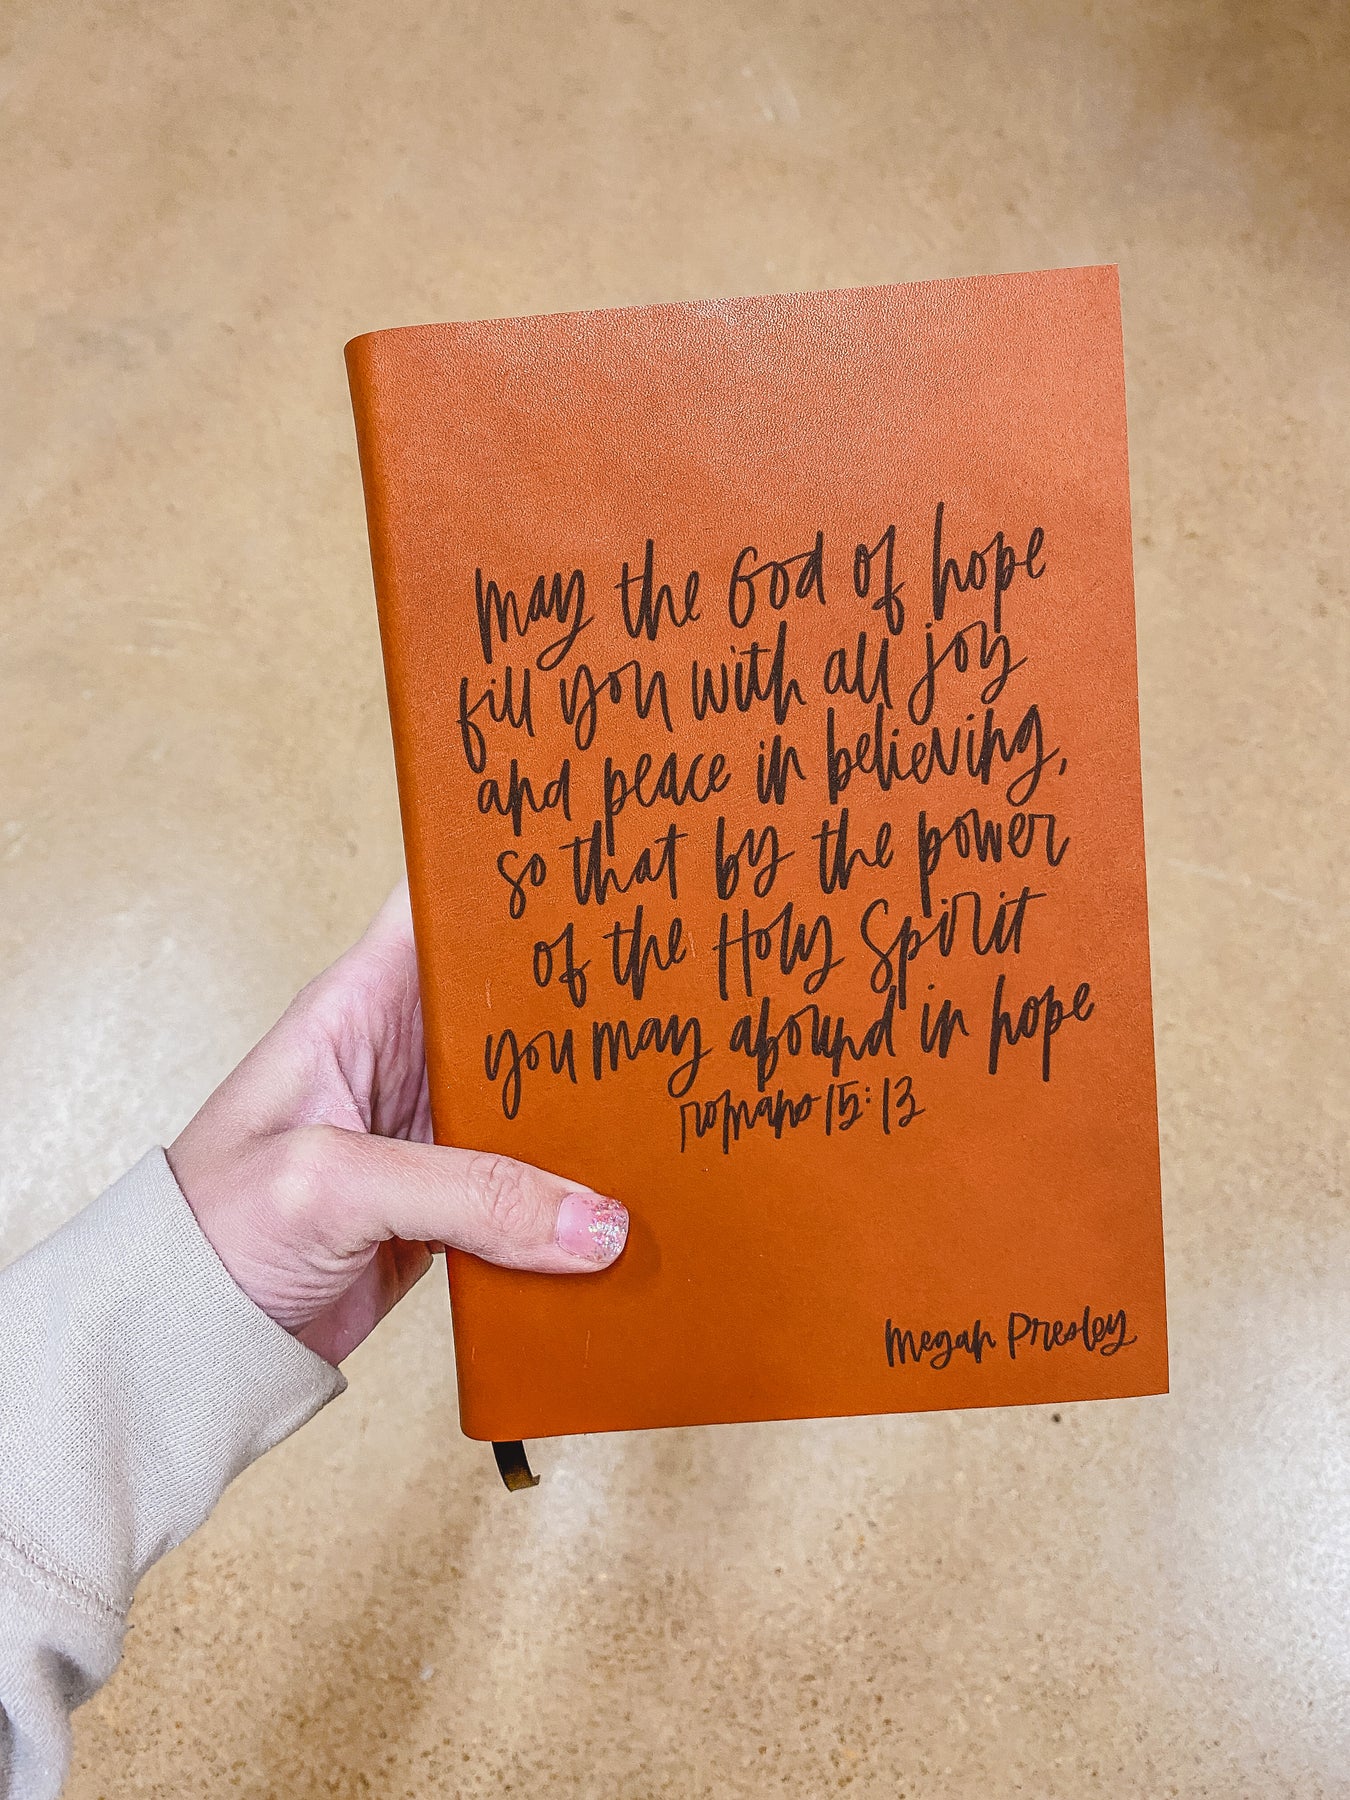 may the God of hope
fill you with all joy
and peace in believing,
so that by the power
of the Holy Spirit
you may abound in hope
romans 15:13
Megan Presley